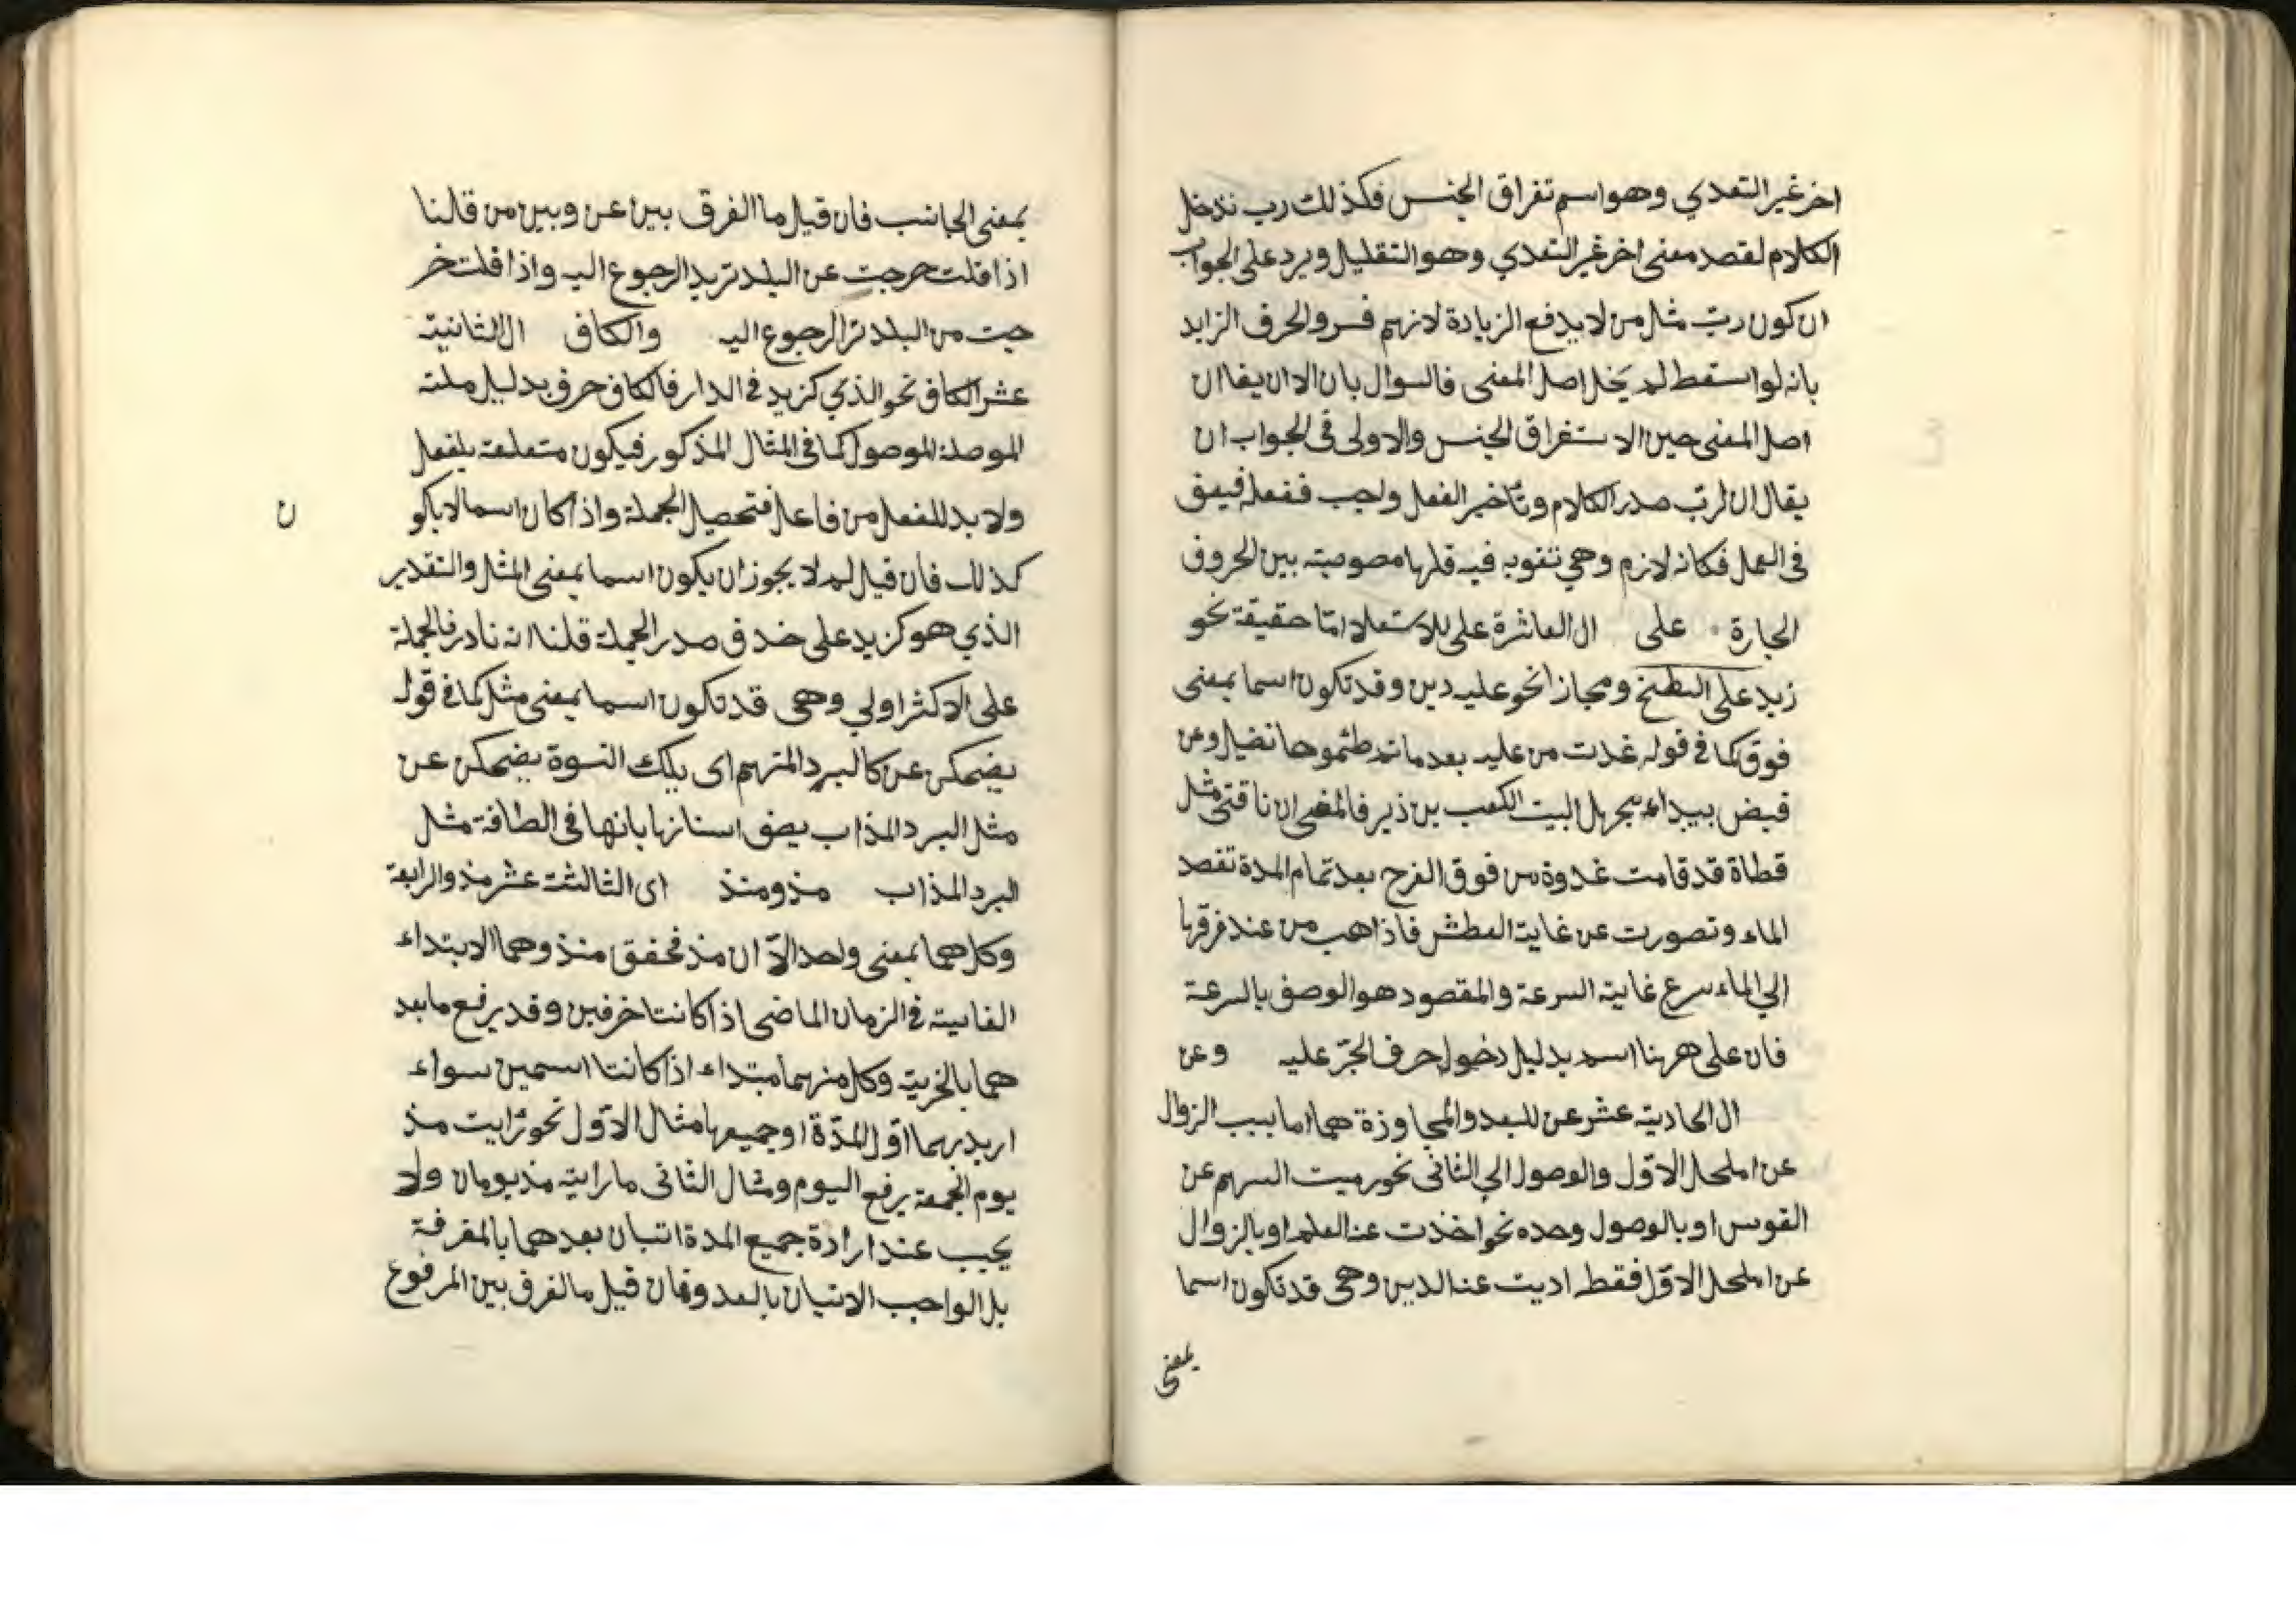 اخر غير التعدي وهو اسم تفراق الجنس فكذلك رب ندخل
الكلام لقصد معنى اخر غير التعدي وهو التقليل ويرد على الجواب
ان كون ربّ مثل من لا يدفع الزيادة لانهم فسروا لحرف الزايد
بانه لو اسقط لم يخل اصل المعنى فالسوال بان الا ان يقا ان
اصل المعنى حين الاستغراق الجنس والاولى فى الجواب ان
يقال ان لربّ صدر الكلام وتأخير الفعل واجب ففعله
فى العمل فكانه لازم وهي تقويه فيه بين الحروف
الجارة على ال العاشرة على للاستعلا امّا حقيقة نحو
زيد على السطح ومجازا نحو عليه دين وقد تكون اسما بمعنى
فوق كما فى قوله غدت من عليه بعد ما تصل وعن
قيض ببيداء مجهل البيت الكعب بن فالمعنى ان ناقتى مثل
قطاة قد قامت غدوة من فوق الفرح بعد تمام المدة تقصد
الماء وتصورت عن غاية العطش فاذاهب من عند فرقها
الي الماء سرع غاية السرعة والمقصود هو الوصف بالسرعة
فان على ههنا اسم بدليل دخول حرف الجرّ عليه وعن
ال الحادية عشر عن للبعد والمجاوزة هما اما بيب الزوال
عن املحل الاوّل والوصول الي الثانى نحو رميت السهم عن
القوس او بالوصول وحده نحو اخذت عنه العلم او بالزوال
عن املحل الاوّل فقط اديت عنه الدين وهى قد تكون اسما
بمعنى
بمعنى الجانب فان قيل ما الفرق بين عن وبين من قلنا
اذا قلت خرجت عن البلد تريد الرجوع اليه واذا قلت خر
جت من البلد الرجوع اليه والكاف ال الثانية
عشر الكاف نحو الذي كزيد فى الدار فالكاف حرف بدليل
الموصلة الموصول كما فى المثال المذكور فيكون متعلقة بلفعل
ولا بد للفعل من فاعل فتحصيل الجملة واذا كان اسما لا يكو
ن
كذلك فان قيل لم لا يجوز ان يكون اسما بمعنى المثل والتقدير
الذي هو كزيد على حذف صدر الجملة قلنا انه نادر فالجملة
على الاكثر اولي وهى قد تكون اسما بمعنى مثل كما فى قوله
يضحكن عن كالبرد المنهم اى يلك النسوة يضحكن عن
مثل البرد المذاب يصف اسنانها بانها فى الطافة مثل
البرد المذاب مذ ومنذ اى الثالثت عشر مذ والرابعة
وكلاهما بمعنى واحد الاّ ان مذ مخفق منذ وهما الابتداء
الغاية فى الزمان الماضى اذا كانتا حرفين وقد يرفع ما بعد
هما بالخرية وكل منهما مبتداء اذا كانتا اسمين سواء
اريد بهما اوّل المدّة او جميعها مثال الاوّل نحو رايت مذ
يوم الجمعة يرفع اليوم ومثال الثانى ما رايته مذ يومان ولا
يجب عند ارادة جميع المدة اتيان بعدهما بالمعرفة
بل الواجب الاتيان بالعدد وفان قيل ما الفرق بين المرفوع